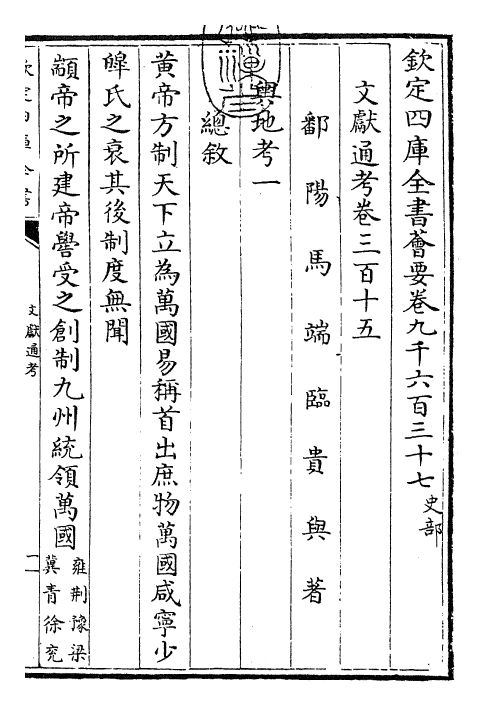 欽定四庫全書薈要卷九千六百三十七史部
文獻通考卷三百十五
鄱陽馬端臨貴與著
輿地考一
總敘
黄帝方制天下立為萬國易稱首出庶物萬國咸寧少
皞氏之衰其後制度無聞
顓帝之所建帝嚳受之創制九州統領萬國雍荆豫梁
冀青徐兖
文獻通考
一